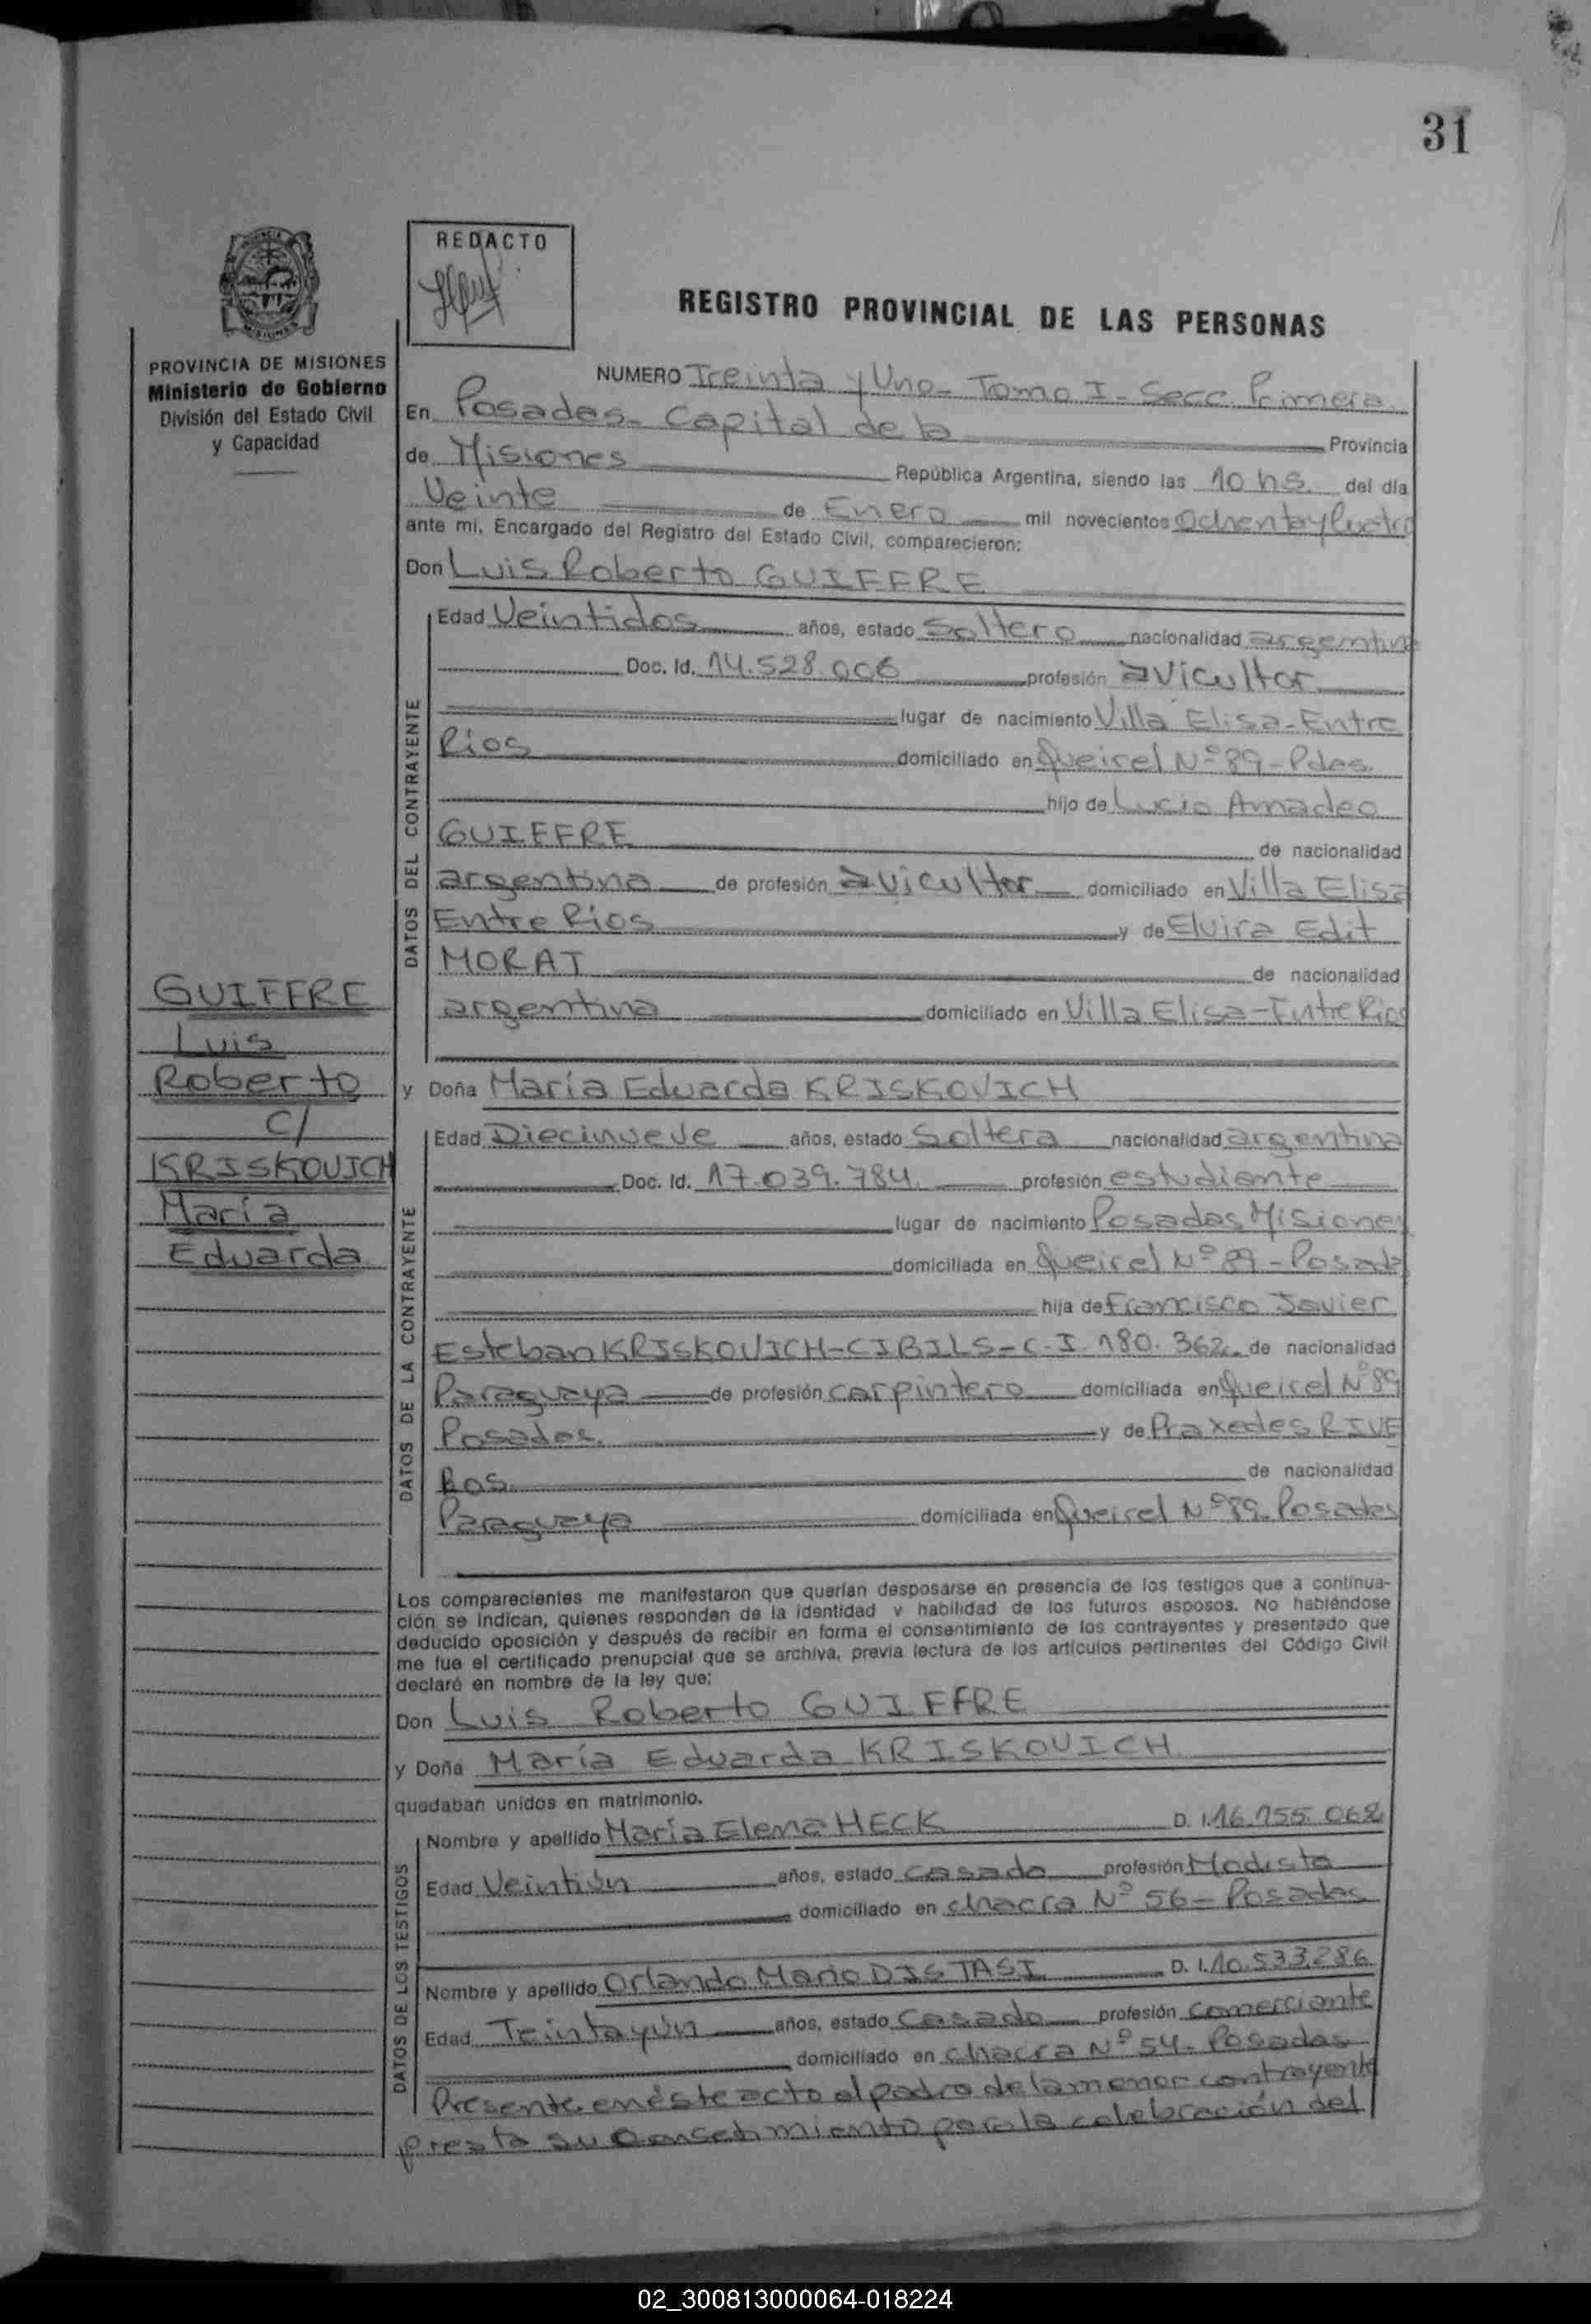 31
REDACTO
REGISTRO PROVINCIAL DE LAS PERSONAS
PROVINCIA DE MISIONES
Ministerio de Gobierno
División del Estado Civil
y Capacidad
NUMERO Treinta y Uno- Tomo I- Secc. Primera
En Posadas- Capital de la Provincia
de Misiones República Argentina, siendo las 10 hs. del día
Veinte de Enero mil novecientos Ochenta y Cuatro
ante mí, Encargado del Registro del Estado Civil, comparecieron:
Don Luis Roberto GUIFFRE
DATOS DEL CONTRAYENTE
Edad Veintidos años, estado Soltero nacionalidad argentina
Doc. Id. 14.528.006 profesión avicultor
lugar de nacimiento Villa Elisa-Entre
Rios domiciliado en Queirel Nº 89-Pdas.
hijo de Lucio Amadeo
GUIFFRE de nacionalidad
argentina de profesión avicultor domiciliado en Villa Elisa
Entre Rios y de Elvira Edit
MORAT de nacionalidad
argentina domiciliado en Villa Elisa-Entre Rios
GUIFFRE
Luis
Roberto
c/
KRISKOVICH
María
Eduarda
y Doña María Eduarda KRISKOVICH
DATOS DE LA CONTRAYENTE
Edad Diecinueve años, estado Soltera nacionalidad argentina
Doc. Id. 17.039.784 profesión estudiante
lugar de nacimiento Posadas Misiones
domiciliada en Queirel Nº 89-Posadas
hija de Francisco Javier
Esteban KRISKOVICH-CIBILS-C.I. 180.362 de nacionalidad
Paraguaya de profesión carpintero domiciliada en Queirel Nº 89
Posadas. y de Praxedes RIVE
ROS de nacionalidad
Paraguaya domiciliada en Queirel Nº 89 Posadas
Los comparecientes me manifestaron que querían desposarse en presencia de los testigos que a continua-
ción se indican, quienes responden de la identidad y habilidad de los futuros esposos. No habiéndose
deducido oposición y después de recibir en forma el consentimiento de los contrayentes y presentado que
me fue el certificado prenupcial que se archiva, previa lectura de los artículos pertinentes del Código Civil
declaré en nombre de la ley que:
Don Luis Roberto GUIFFRE
y Doña María Eduarda KRISKOVICH
quedaban unidos en matrimonio.
DATOS DE LOS TESTIGOS
Nombre y apellido María Elena HECK D. I. 16.155.068
Edad Veintiún años, estado casada profesión Modista
domiciliado en chacra Nº 56- Posadas
Nombre y apellido Orlando Mario DISTASI D. I. 10.533.286
Edad Teintayún años, estado Casado profesión comerciante
domiciliado en chacra Nº 54- Posadas
Presente en éste acto el padre de la menor contrayente
presta su consetimiento para la celebración del
02_300813000064-018224